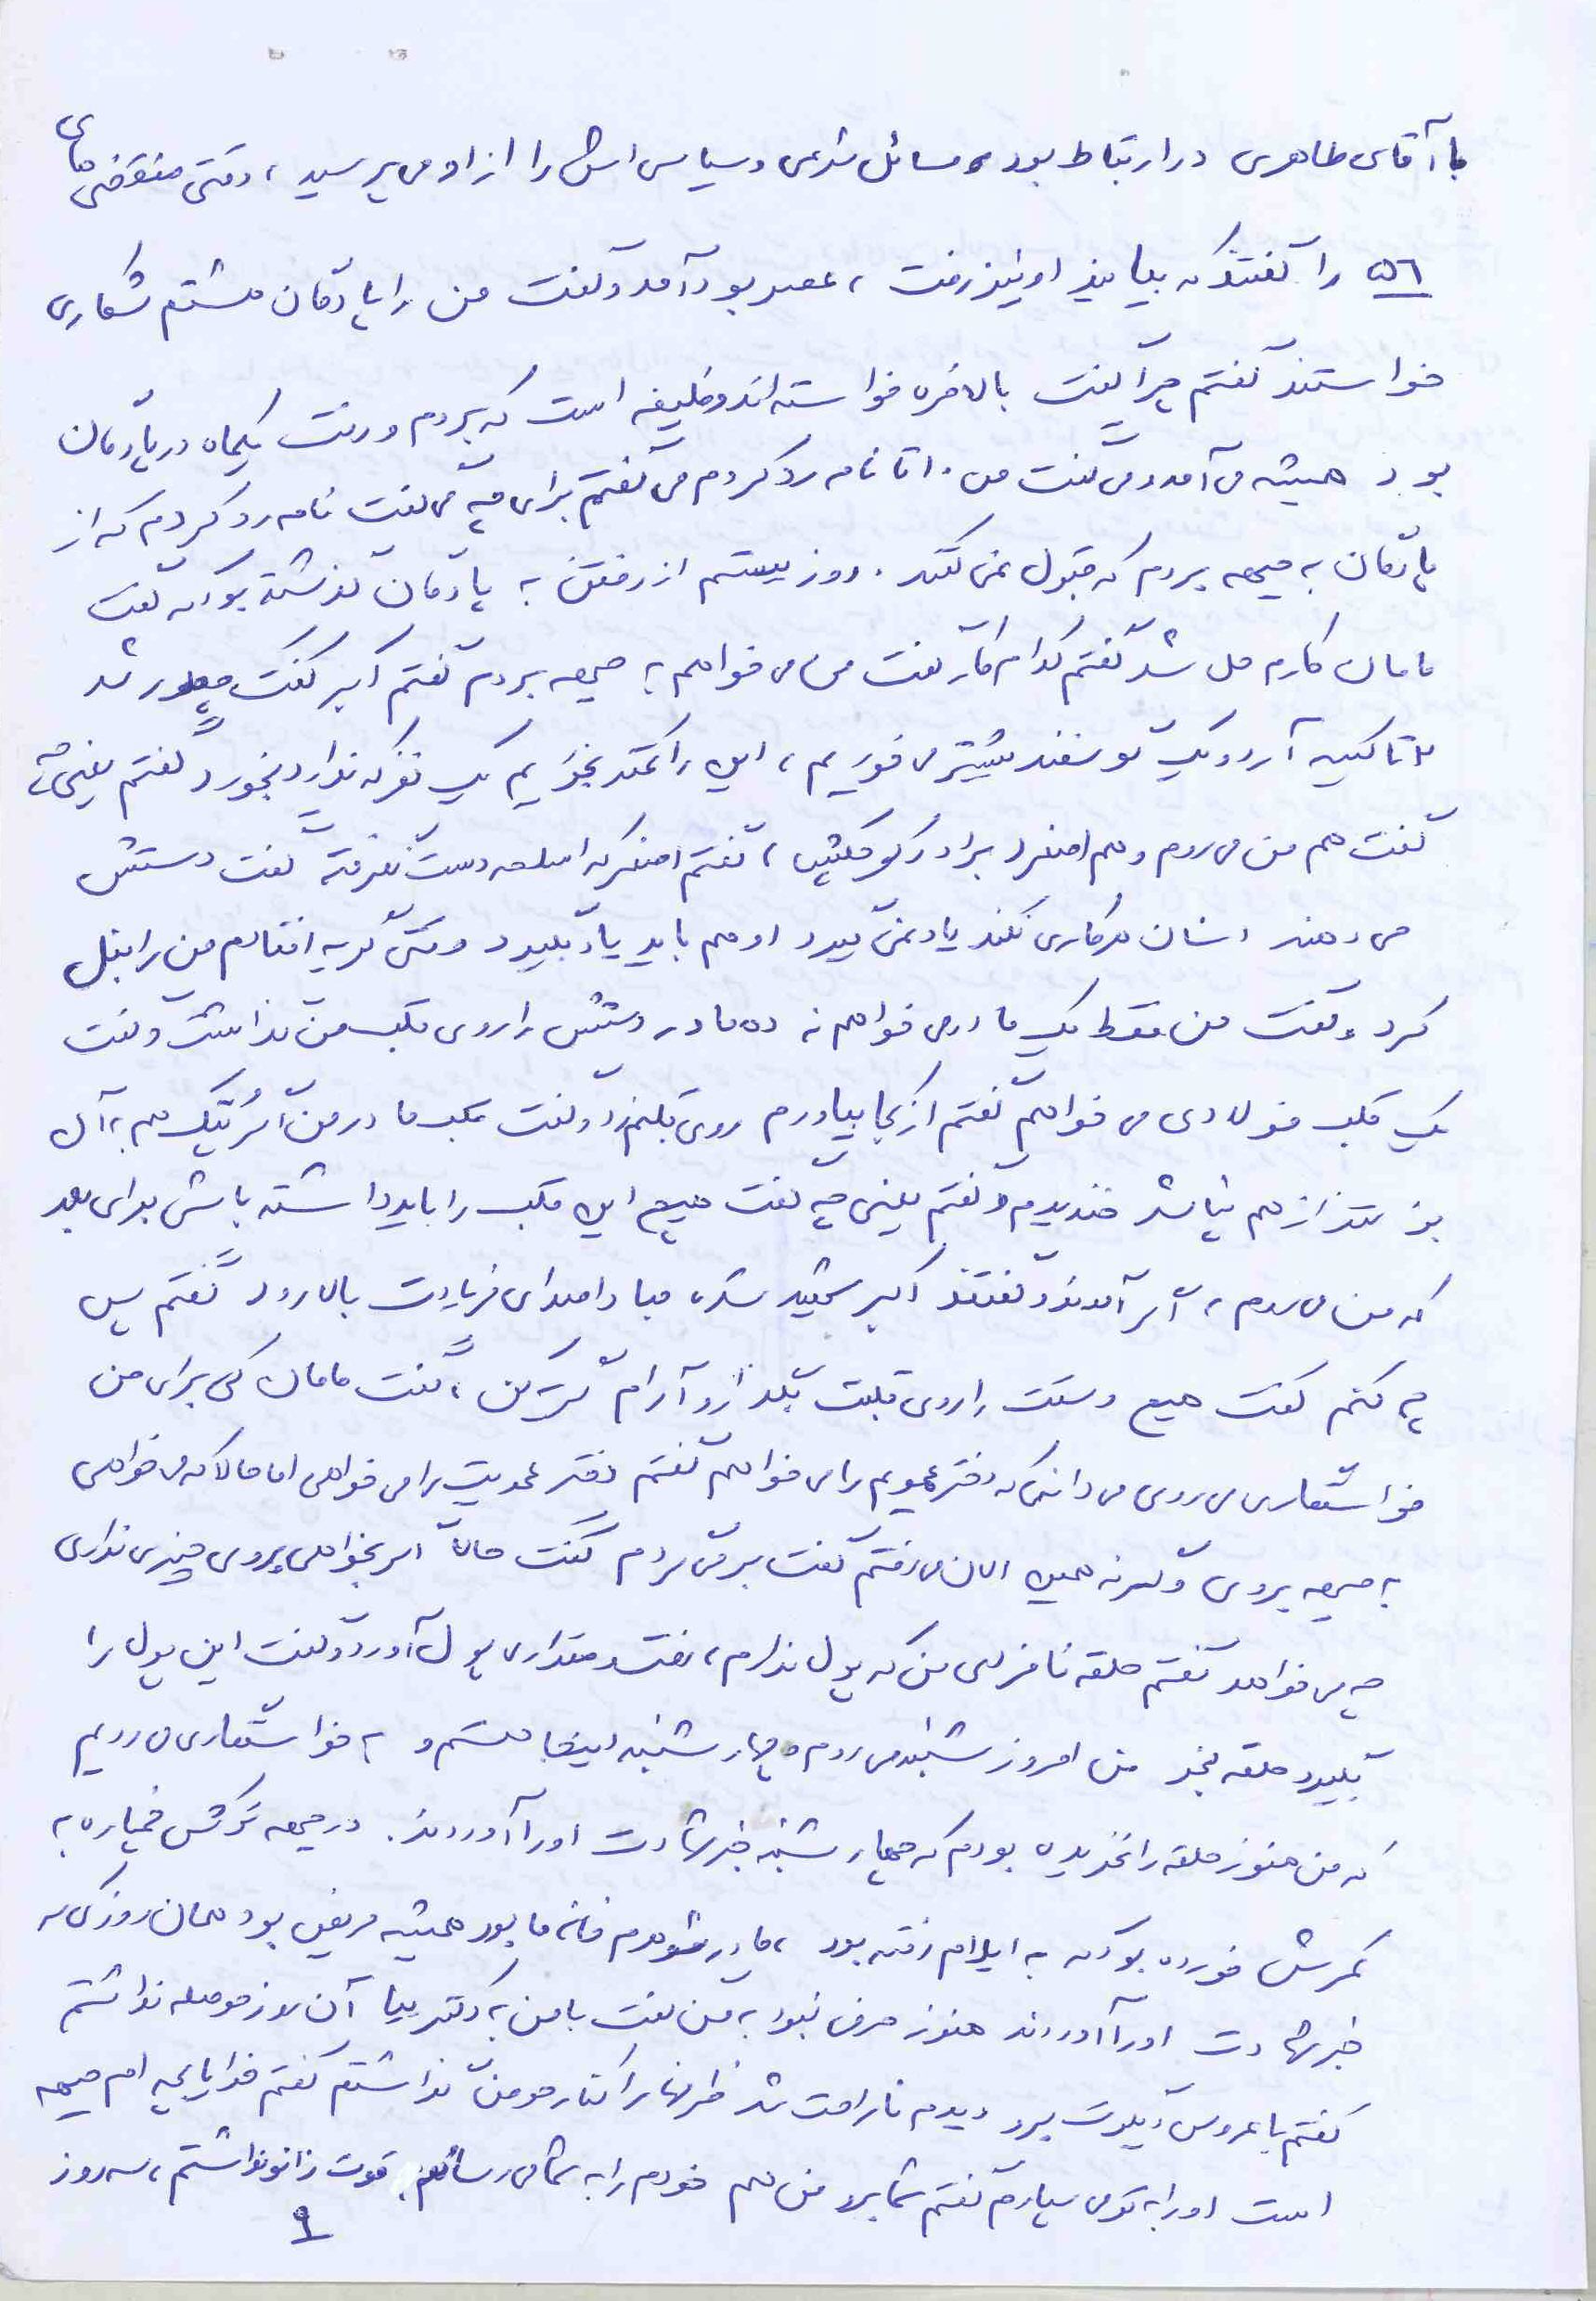 با آقای طاهری در ارتباط بود و مسائل شرعی و سیاسی اش را از او می پرسید، وقتی منقضی های
۵۶ را گفتند که بیایید او نیز رفت، عصر بود آمد و گفت من را پادگان هشتم شکاری
خواستند گفتم چرا گفت بالاخره خواسته اند وظیفه است که بروم و رفت یکماه در پادگان
بود همیشه می آمد و می گفت من ۱۰ تا نامه رد کردم می گفتم برای چه می گفت نامه رد کردم که از
پادگان به جبهه بروم که قبول نمی کنند. روز بیستم از رفتن به پادگان گذشته بود که گفت
مامان کارم حل شد گفتم کدام کار گفت من می خواهم به جبهه بروم گفتم اکبر گفت چطور شد
۲ تا کیسه آرد و یک گوسفند بیشتر می خوریم، این را کمتر بخوریم یک نفر که ندارد بخورد گفتم یعنی چه
گفت هم من می روم و هم اصغر برادر کوچکتیش، گفتم اصغر که اسلحه دست نگرفته گفت دستش
می دهند انسان هر کاری نکند یاد نمی گیرد او هم باید یاد بگیرد وقتی گریه افتادم من را بغل
کرد و گفت من فقط یک مادر می خواهم نه ده مادر دستش را روی قلب من گذاشت و گفت
یک قلب فولادی می خواهم گفتم از کجا بیاورم روی قلبم زد و گفت قلب مادر من اگر تیک هم به آن
بزنند از هم نپاشد خندیدم و گفتم یعنی چه گفت هیچ این قلب را باید داشته باشی برای بعد
که من می روم، اگر آمدند و گفتند اکبر شهید شده مبادا صدای فریادت بالا رود گفتم پس
چه کنم گفت هیچ دستت را روی قلبت بگذار و آرام گریه کن، گفت مامان کی برای من
خواستگاری می روی می دانی که دختر عمویم را می خواهم گفتم دختر عمویت را می خواهی اما حالا که می خواهی
به جبهه بروی وگرنه همین الان می رفتم گفت بر می گردم گفت حالا اگر بخواهی بروی چیزی نداری
چه می خواهد گفتم حلقه نامزدی من که پول ندارم، رفت و مقداری پول آورد و گفت این پول را
بگیرد حلقه بخر من امروز شنبه می روم و چهارشنبه اینجا هستم و به خواستگاری می رویم
که من هنوز حلقه را نخریده بودم که چهارشنبه خبر شهادت او را آوردند. در جبهه ترکش خمپاره به
کمرش خورده بود که به ایلام رفته بود، مادر شوهرم خانه ما بود همیشه مریض بود همان روزی که
خبر شهادت او را آوردند هنوز حرفی نبود به من گفت با من به دکتر بیا آن روز حوصله نداشتم
گفتم با عروس دیگرت برو دیدم ناراحت شد ظرفها را کنار حوض گذاشتم گفتم خدایا بچه ام جبهه
است او را به تو می سپارم گفتم شما برو من هم خودم را به شما می رسانم. قوت زانو نداشتم، سه روز
۹